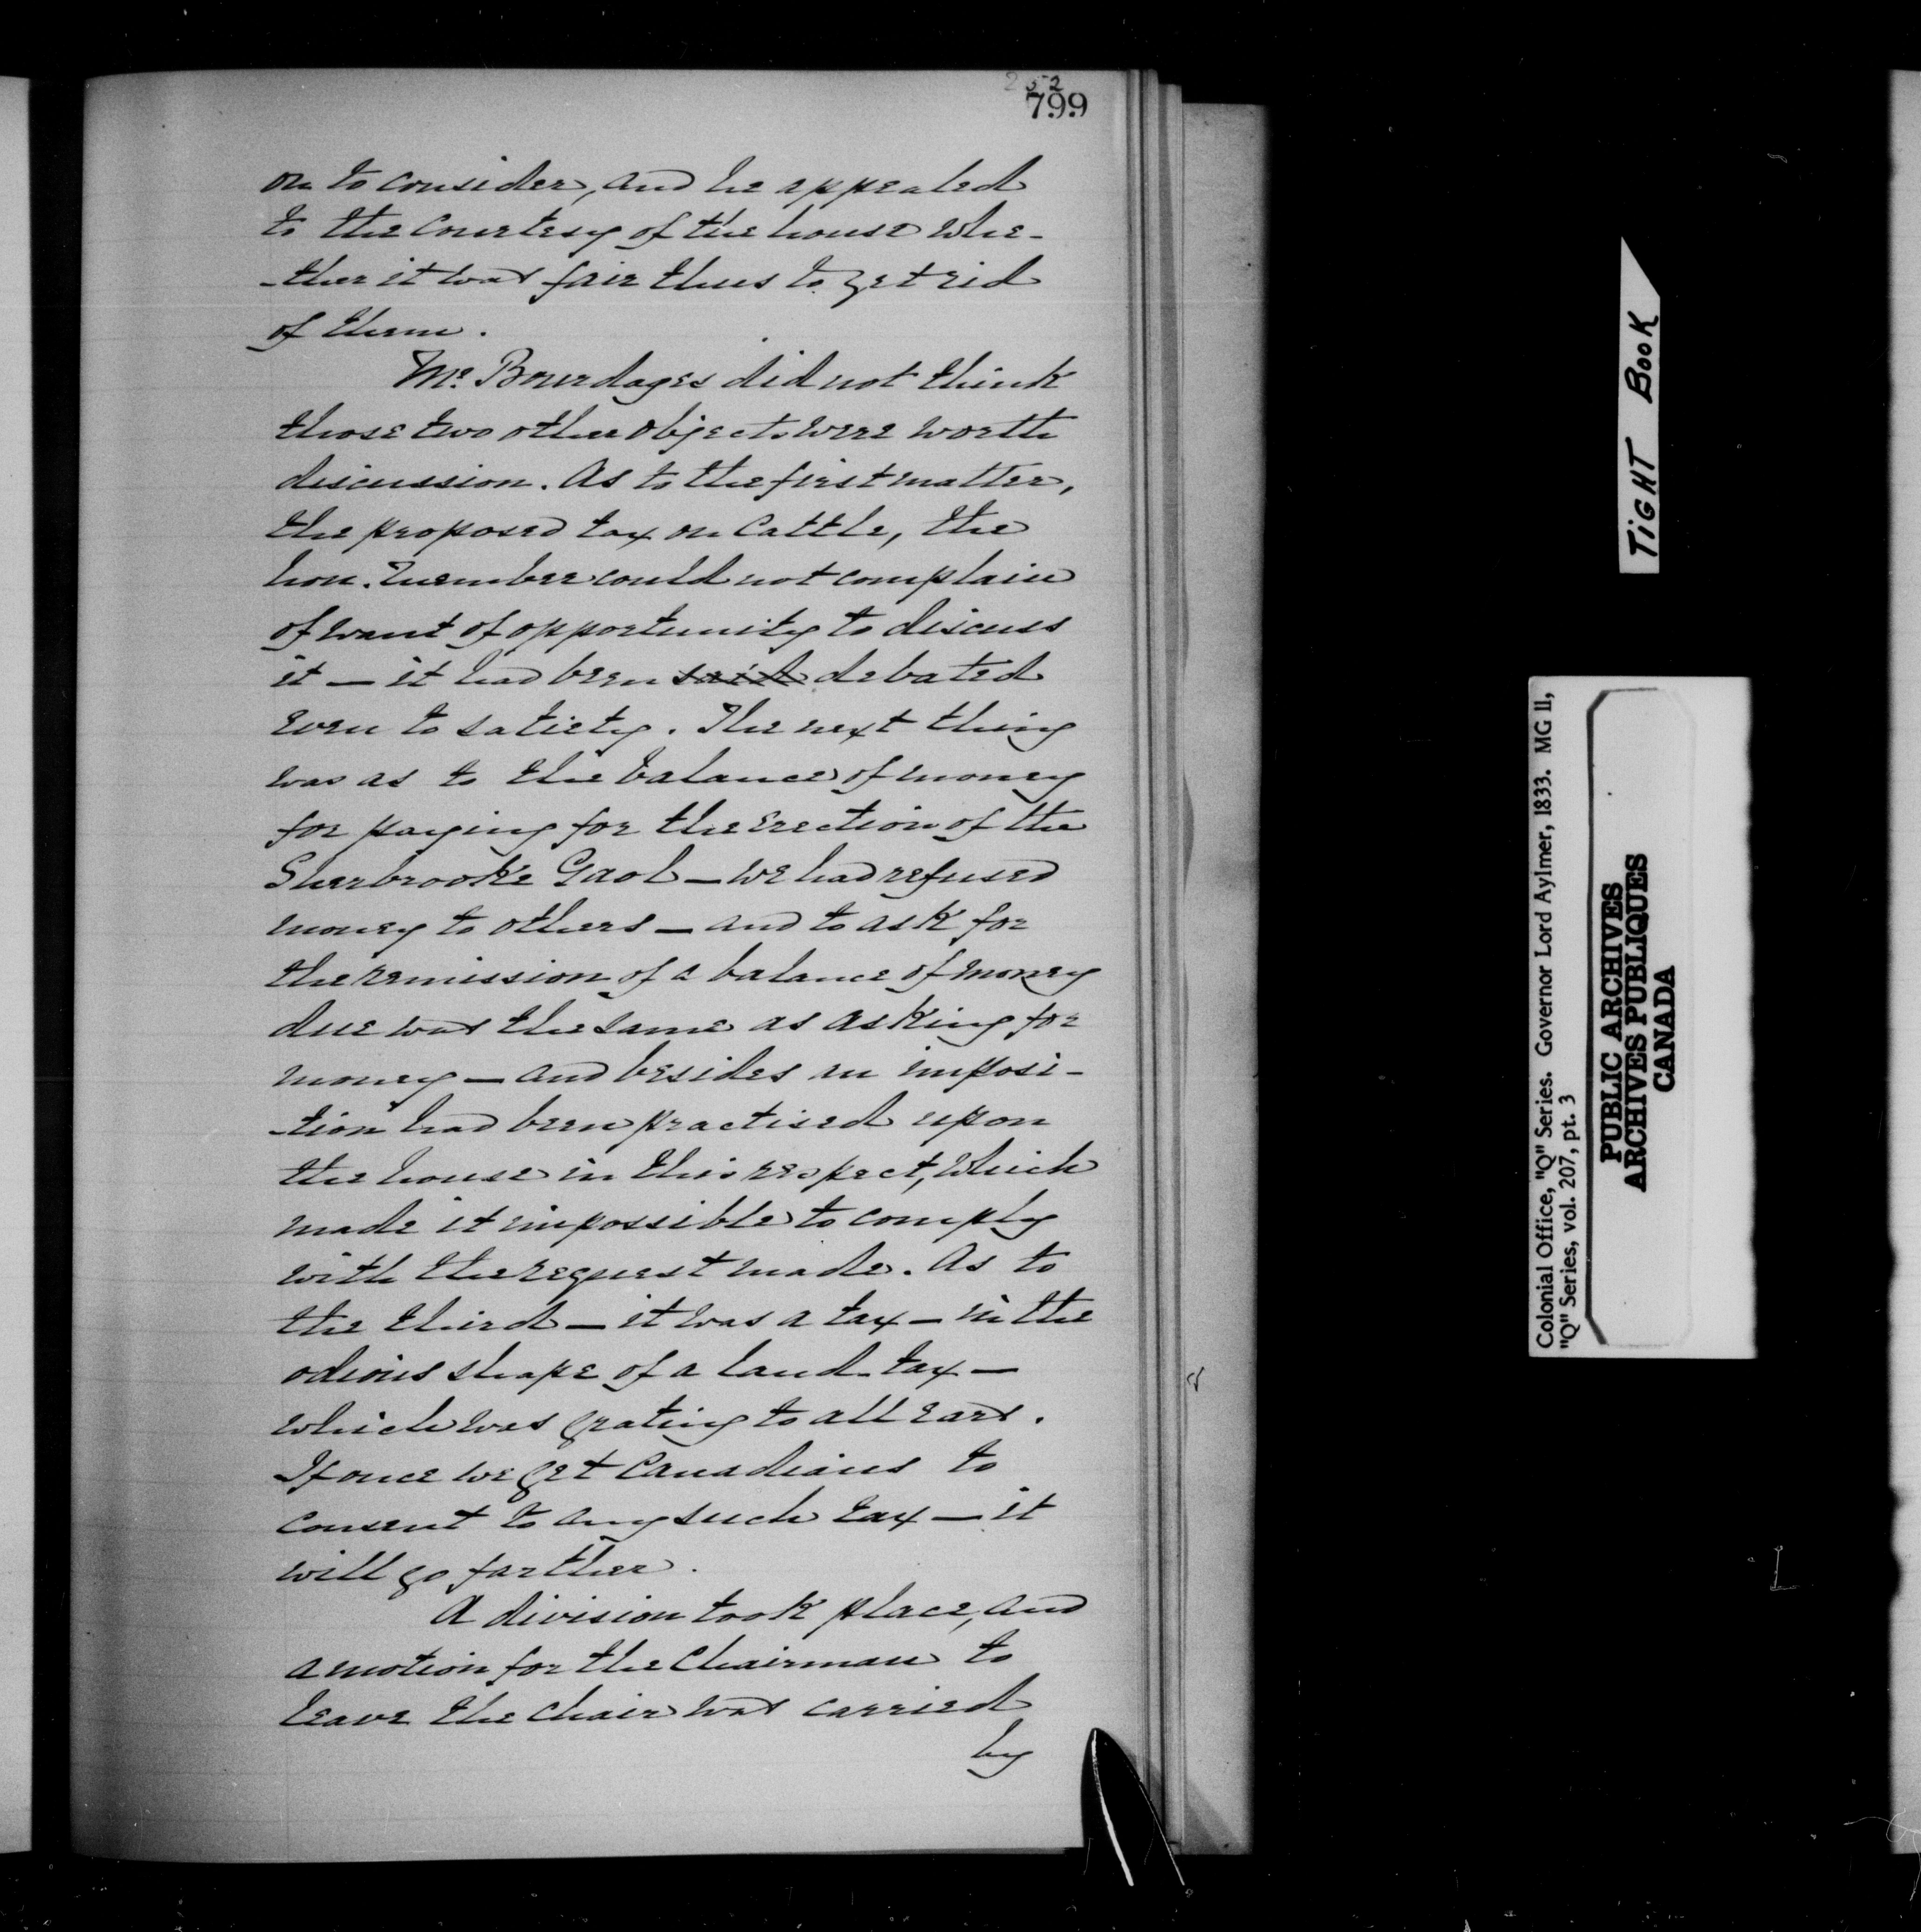 252
799
on to consider, and he appealed
to the courtesy of the house whe-
-ther it was fair thus to get rid
of them.
Mr. Bourdages did not think
those two other objects were worth
discussion. As to the first matter,
the proposed tax on Cattle, the
hon. member could not complain
of want of opportunity to discuss
it — it had been said debated
even to satiety. The next thing
was as to the balance of money
for paying for the erection of the
Sherbrooke Gaol — we had refused
money to others — and to ask for
the remission of a balance of money
due was the same as asking for
money — and besides an imposi-
-tion had been practised upon
the house in this respect, which
made it impossible to comply
with the request made. As to
the third — it was a tax — in the
odious shape of a land-tax —
which was grating to all ears.
If once we get Canadians to
consent to any such tax — it
will go farther.
A division took place, and
a motion for the Chairman to
leave the chair was carried
by
TIGHT BOOK
Colonial Office, "Q" Series. Governor Lord Aylmer, 1833. MG 11,
"Q" Series, vol. 207, pt. 3
PUBLIC ARCHIVES
ARCHIVES PUBLIQUES
CANADA